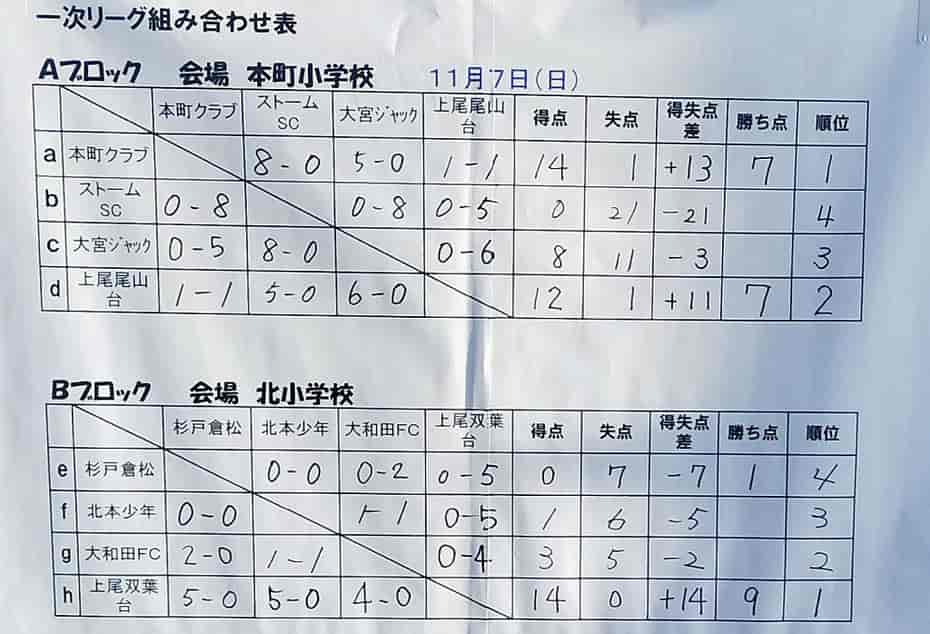 一次リーグ組み合わせ表
Aブロック 会場 本町小学校 11月7日(日)
本町クラブ ストームSC 大宮ジャック 上尾尾山台 得点 失点 得失点差 勝ち点 順位
a 本町クラブ 8-0 5-0 1-1 14 1 +13 7 1
b ストームSC 0-8 0-8 0-5 0 21 -21 4
c 大宮ジャック 0-5 8-0 0-6 8 11 -3 3
d 上尾尾山台 1-1 5-0 6-0 12 1 +11 7 2
Bブロック 会場 北小学校
杉戸倉松 北本少年 大和田FC 上尾双葉台 得点 失点 得失点差 勝ち点 順位
e 杉戸倉松 0-0 0-2 0-5 0 7 -7 1 4
f 北本少年 0-0 1-1 0-5 1 6 -5 3
g 大和田FC 2-0 1-1 0-4 3 5 -2 2
h 上尾双葉台 5-0 5-0 4-0 14 0 +14 9 1